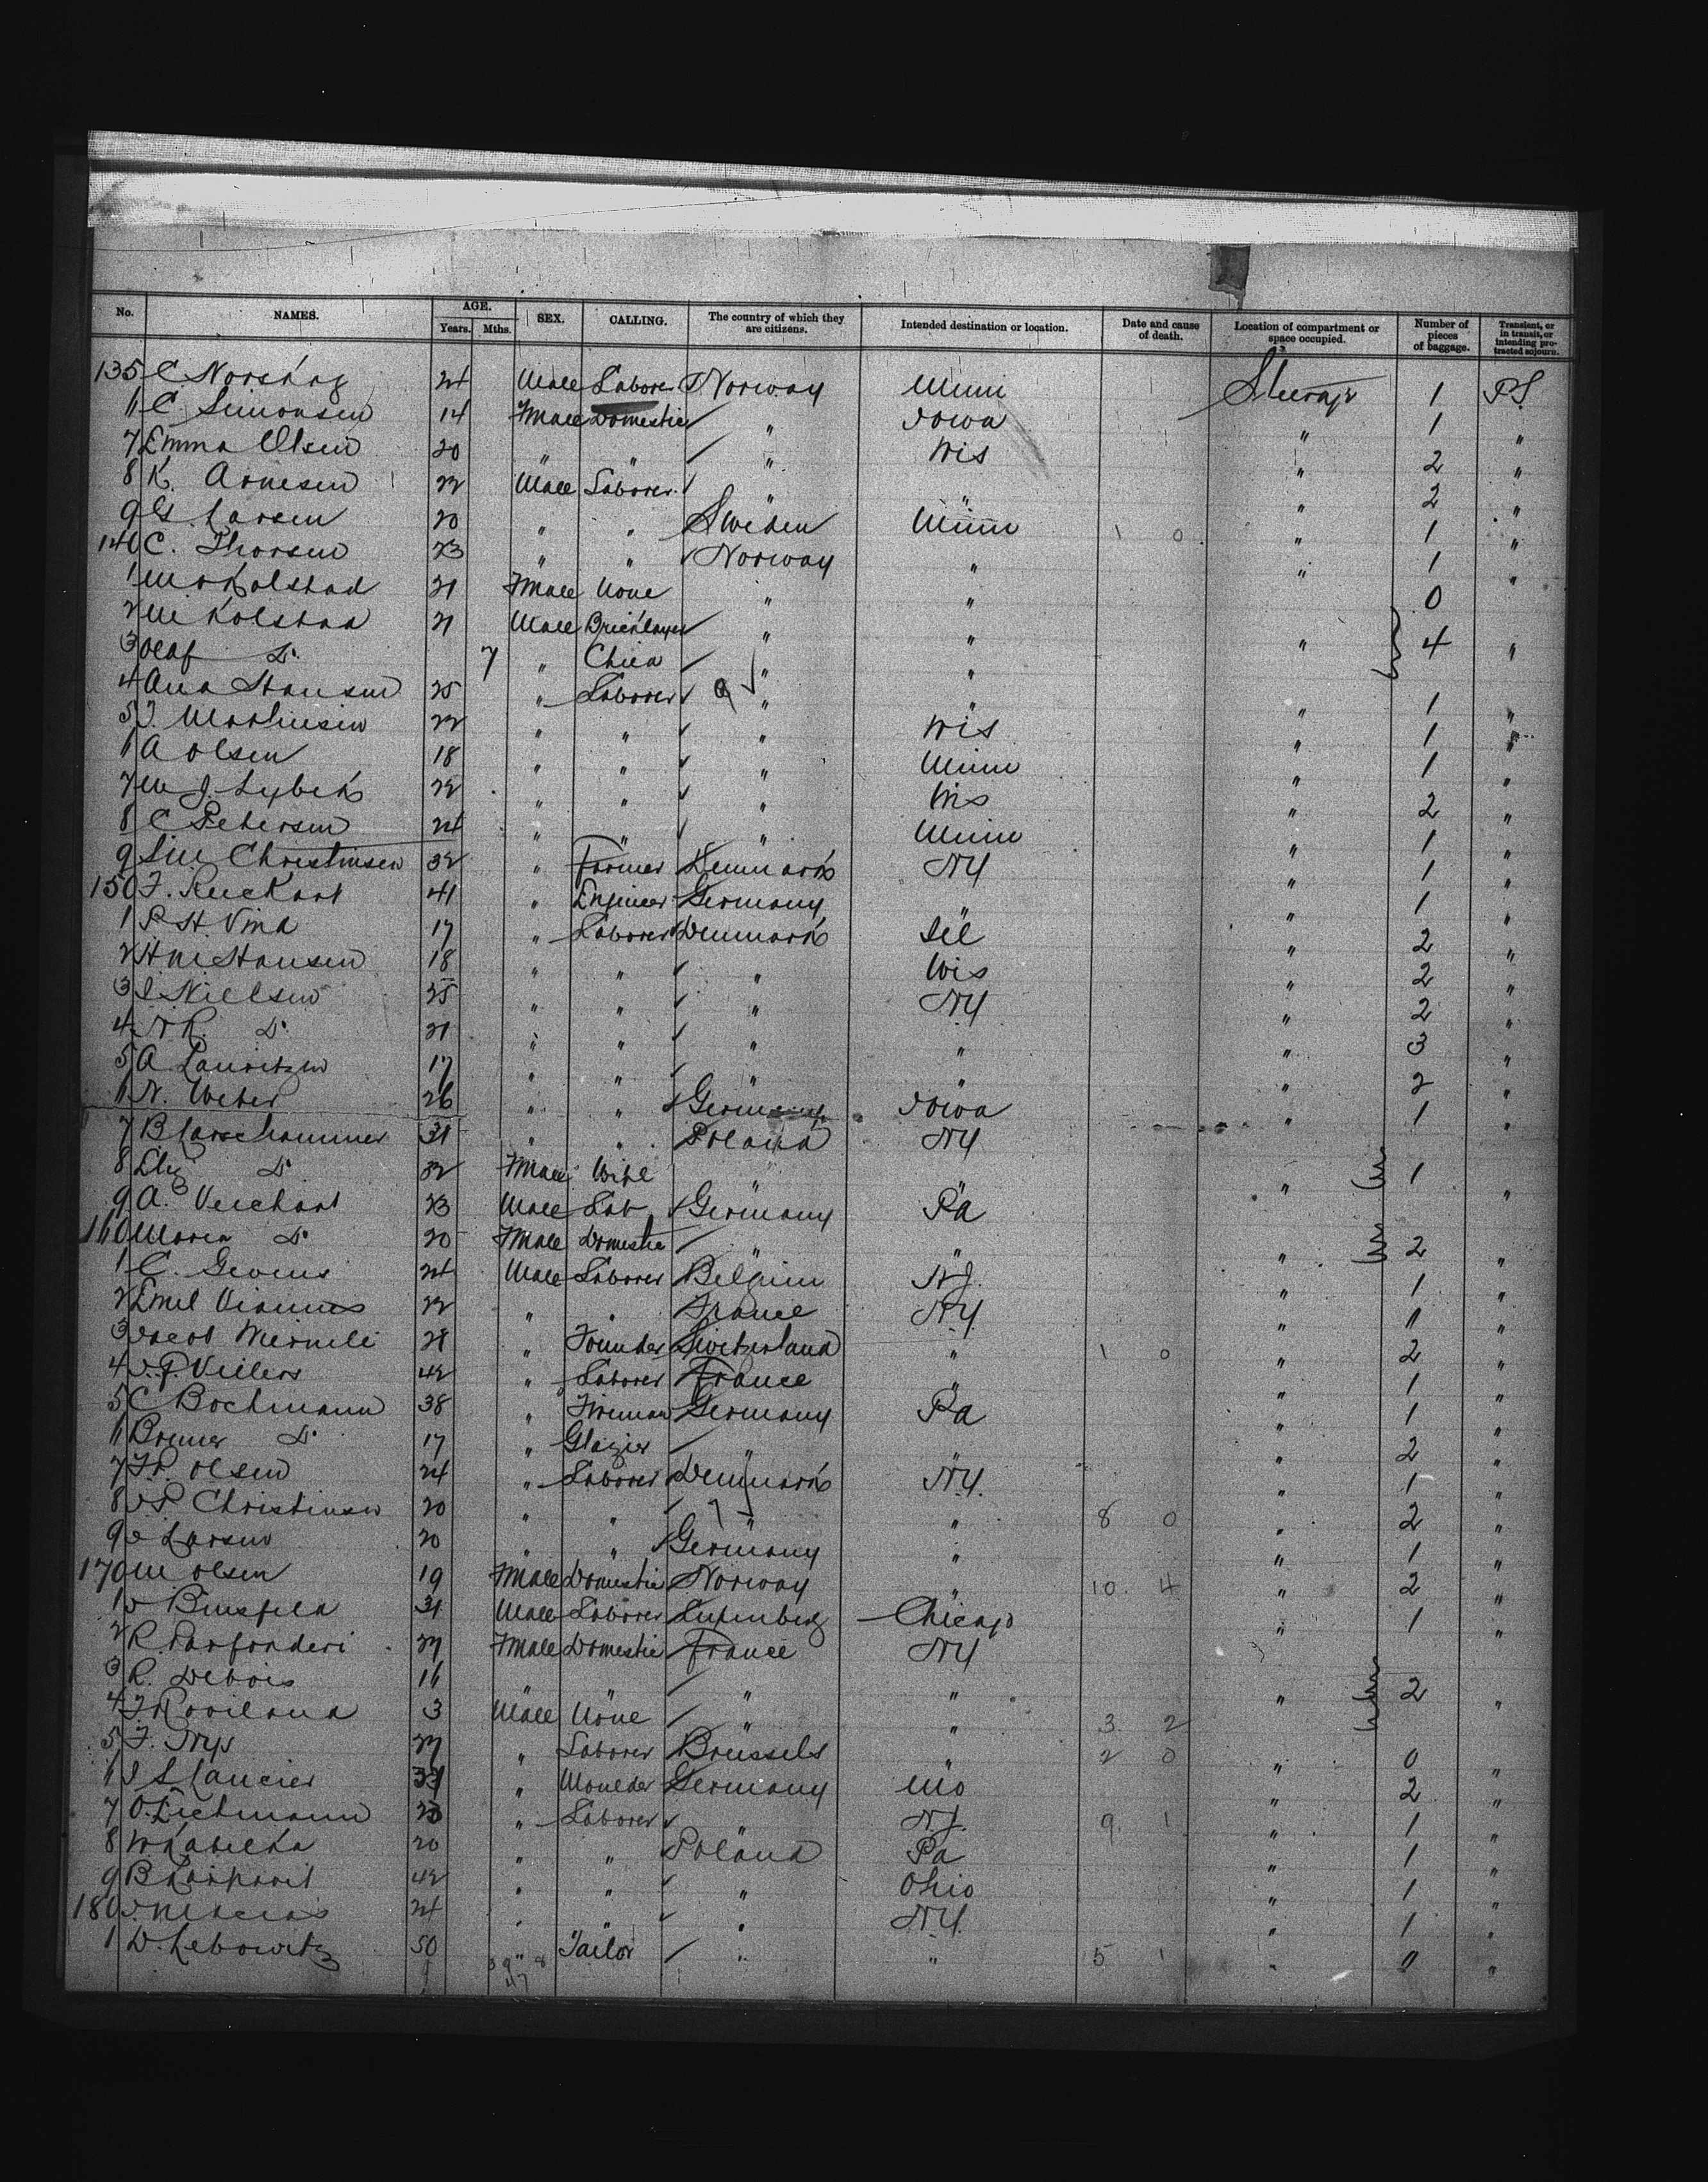 No. NAMES. AGE. Years. Mths. SEX. CALLING. The country of which they are citizens. Intended destination or location. Date and cause of death. Location of compartment or space occupied. Number of pieces of baggage. Transient, or in transit, or intending protracted sojourn.
135 C 24 Male Laborer Norway Minn Steerage 1 P.S.
6 C. Simonsen 14 Fmale Domestic " Iowa " 1 "
7 Emma Olsen 20 " " " Wis " 2 "
8 K. Arnesen 22 Male Laborer " " " 2 "
9 G. Larsen 20 " " Sweden Minn 1 0 " 1 "
140 C. Thorsen 23 " " Norway " " 1 "
1 M Kolstad 21 Fmale None " " 0
2 M Kolstad 21 Male Bricklayer " " " 4 "
3 Olaf Do 7 " Child " "
4 Ana Hansen 25 " Laborer " " " 1 "
5 J. Martinsen 22 " " " Wis " 1 "
6 A Olsen 18 " " " Minn " 1 "
7 M J. Lybek 22 " " " Wis " 2 "
8 C Petersen 24 " " " Minn " 1 "
9 Christinsen 32 " Farmer Denmark NY " 1 "
150 F. Ruckart 41 " Engineer Germany " " 1 "
1 P H. Vind 17 " Laborer Denmark Ill " 2 "
2 H M Hansen 18 " " " Wis " 2 "
3 I Nielsen 25 " " " NY " 2 "
4 N R. Do 21 " " " " " 3 "
5 A Lauritzen 17 " " " " " 2 "
6 N. Weber 26 " " Germany Iowa " 1 "
7 B 31 " " Poland NY
8 Do 32 Fmale Wife " " " 1 "
9 A. Veichart 23 Male Lab Germany Pa
160 Maria Do 20 Fmale Domestic " " " 2 "
1 C. 24 Male Laborer Belgium N.J. " 1 "
2 Emil 22 " " France NY " 1 "
3 Jacob 28 " Founder Switzerland " 1 0 " 2 "
4 J. P. Villers 42 " Laborer France " " 1 "
5 C Bochmann 38 " Fireman Germany Pa " 1 "
6 Do 17 " Glazier " " " 2 "
7 Olsen 24 " Laborer Denmark NY. " 1 "
8 J P Christinsen 20 " " " " 8 0 " 2 "
9 J Larsen 20 " " Germany " " 1 "
170 M Olsen 19 Fmale Domestic Norway " 10. 4 " 2 "
1 J Binsfeld 31 Male Laborer Luxemberg Chicago " 1 "
2 R. 27 Fmale Domestic France NY
3 R. Debois 16 " " " " " 2 "
4 3 Male None " " 3. 2
5 F. Nys 27 " Laborer Brussels " 2 0 " 0 "
6 " Moulder Germany Mo " 2 "
7 O. Eichmann " Laborer " N.J. 9. 1 " 1 "
8 20 " " Poland Pa " 1 "
9 B 42 " " " Ohio " 1 "
180 24 " " " NY. " 1 "
1 D. Lebowitz 50 " Tailor " " 5 1 "